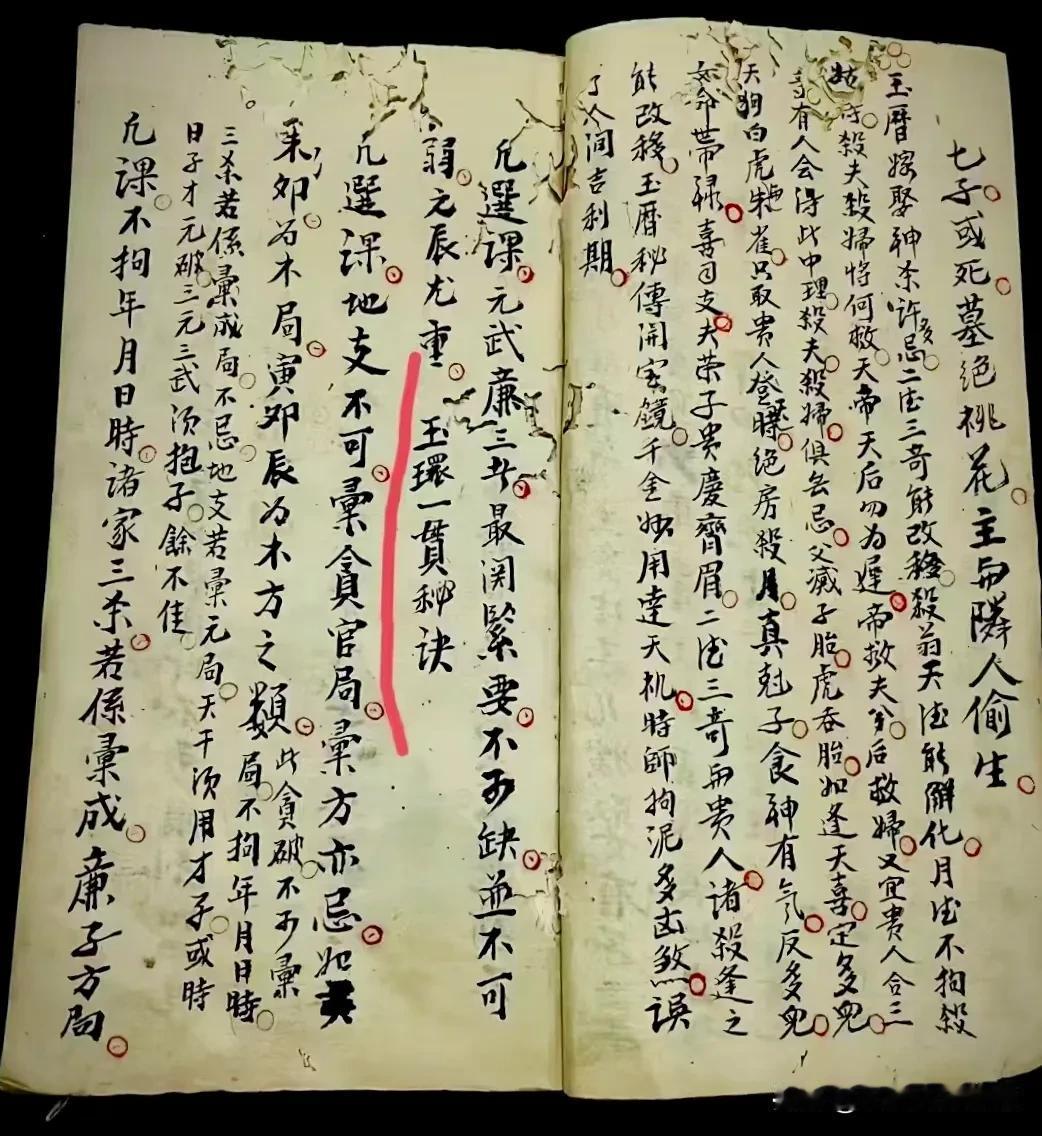 七子或死墓絕桃花主與隣人偷生
玉曆嫁娶神杀許多忌二德三奇能改移殺翁天德能解化月德不拘殺
姑時殺夫殺婦将何救天帝天后内为遲帝救夫兮后救婦又宜貴人合三
奇有人会得此中理殺夫殺婦俱無忌父滅子胎虎吞胎如逢天喜定多兒
天狗白虎朱雀只取貴人登時絕房殺月真尅子食神有氣反多兒
女命帶祿喜司支夫荣子貴慶齊眉二德三奇與貴人諸殺逢之
能改移玉曆秘傳開宝鏡千金妙用達天机時師拘泥多凶煞誤
了人间吉利期
凡選課元武廉三者最関緊要不可缺並不可
弱元辰尤重
玉環一貫秘诀
凡選課地支不可彙貪官局彙方亦忌如亥
未夘为木局寅夘辰为木方之類此貪破不可彙
局不拘年月日時
三杀若係彙成局不忌地支若彙元局天干須用才子或時
日子才元破三元三武須抱子餘不佳
凡課不拘年月日時諸家三杀若係彙成廉子方局